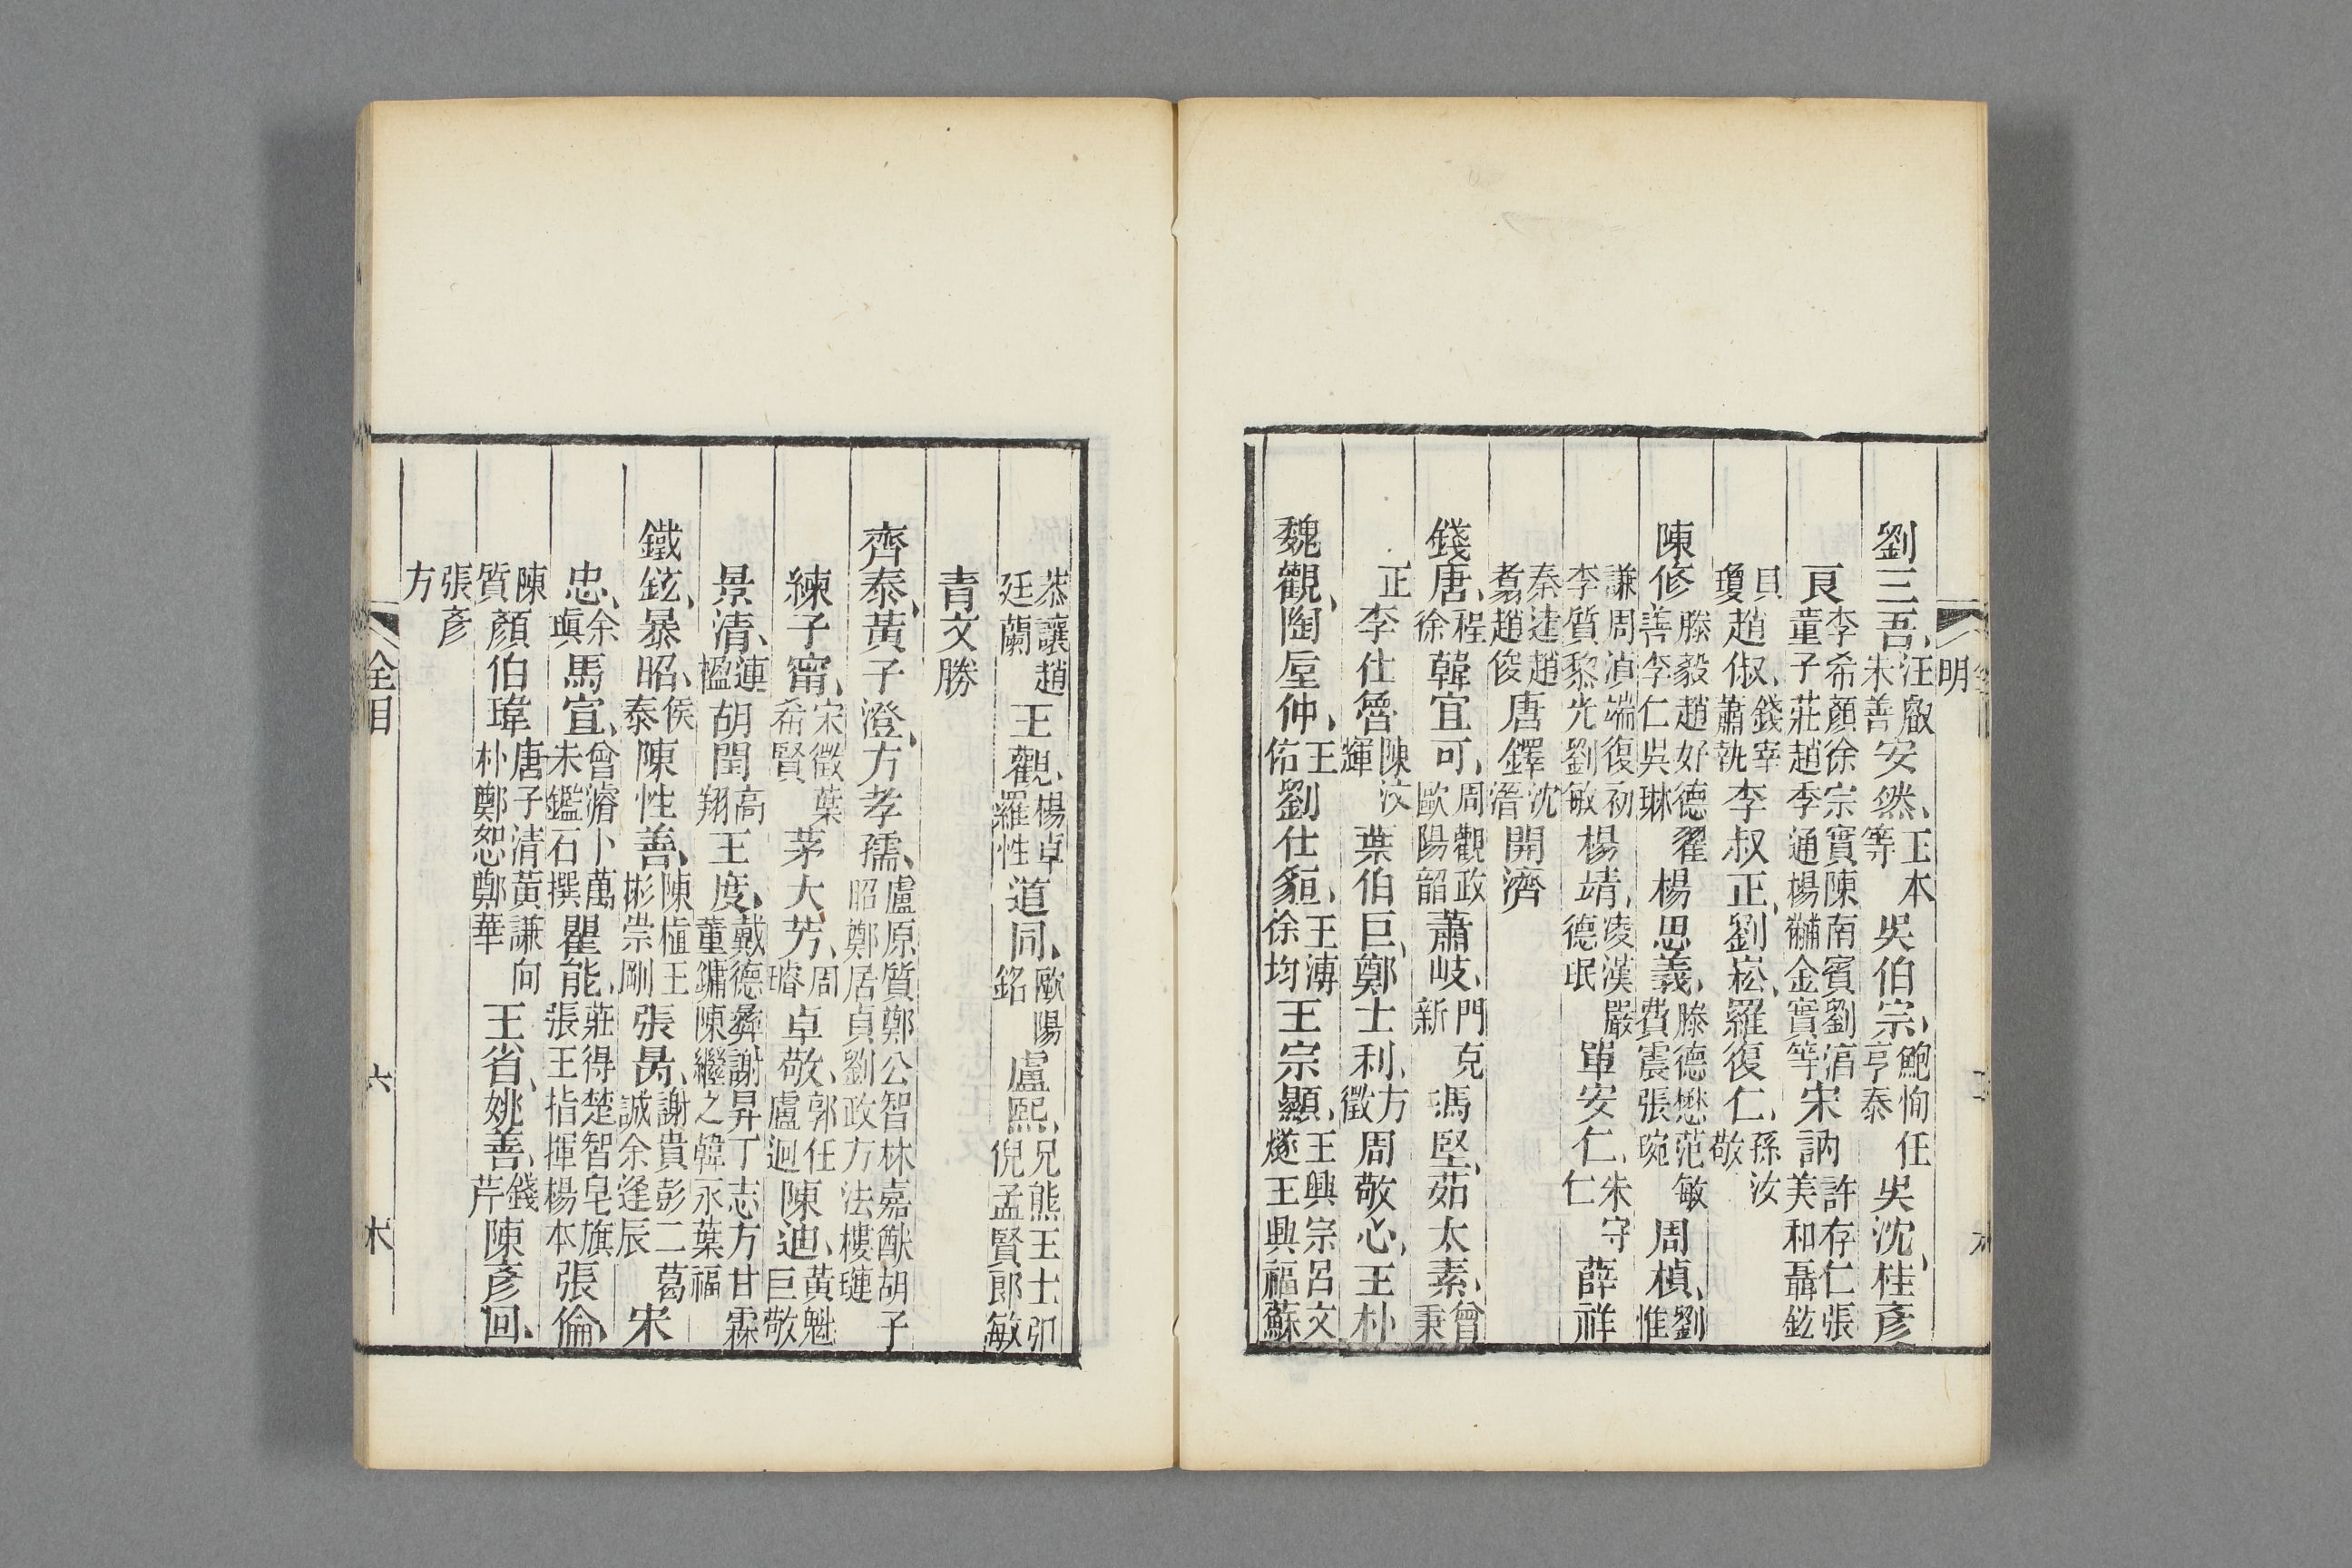 明
劉三吾、汪叡朱善安然、王本等吳伯宗、鮑恂任亨泰吳沈、桂彥
良李希顏徐宗實陳南賓劉淯童子莊趙季通楊黼金實等宋訥許存仁張美和聶鉉
貝瓊趙俶、錢宰蕭執李叔正、劉崧、羅復仁、孫汝敬
陳修滕毅趙好德翟善李仁吳琳楊思義、滕德懋范敏費震張琬周楨、劉惟
謙周湞端復初李質黎光劉敏楊靖、凌漢嚴德珉單安仁、朱守仁薛祥
秦逵趙翥趙俊唐鐸沈溍開濟
錢唐、程徐韓宜可、周觀政歐陽韶蕭岐、門克新馮堅、茹太素、曾秉
正李仕魯陳汶輝葉伯巨、鄭士利、方徵周敬心、王朴
魏觀、陶垕仲、王佑劉仕貆、王溥徐均王宗顯、王興宗呂文燧王興福蘇
恭讓趙廷蘭王觀、楊卓羅性道同、歐陽銘盧熙、兄熊王士弘倪孟賢郎敏
青文勝
齊泰、黃子澄、方孝孺、盧原質鄭公智林嘉猷胡子昭鄭居貞劉政方法樓璉
練子甯、宋徵葉希賢茅大芳、周璿卓敬、郭任盧迥陳迪、黃魁巨敬
景清、連楹胡閏高翔王度、戴德彝謝昇丁志方甘霖董鏞陳繼之韓永葉福
鐵鉉、暴昭、侯泰陳性善、陳植王彬崇剛張昺、謝貴彭二葛誠余逢辰宋
忠、余瑱馬宣、曾濬卜萬朱鑑石撰瞿能、莊得楚智皂旗張王指揮楊本張倫、
陳質顏伯瑋唐子清黃謙向朴鄭恕鄭華王省、姚善、錢芹陳彥回、
張彥方
全目
六